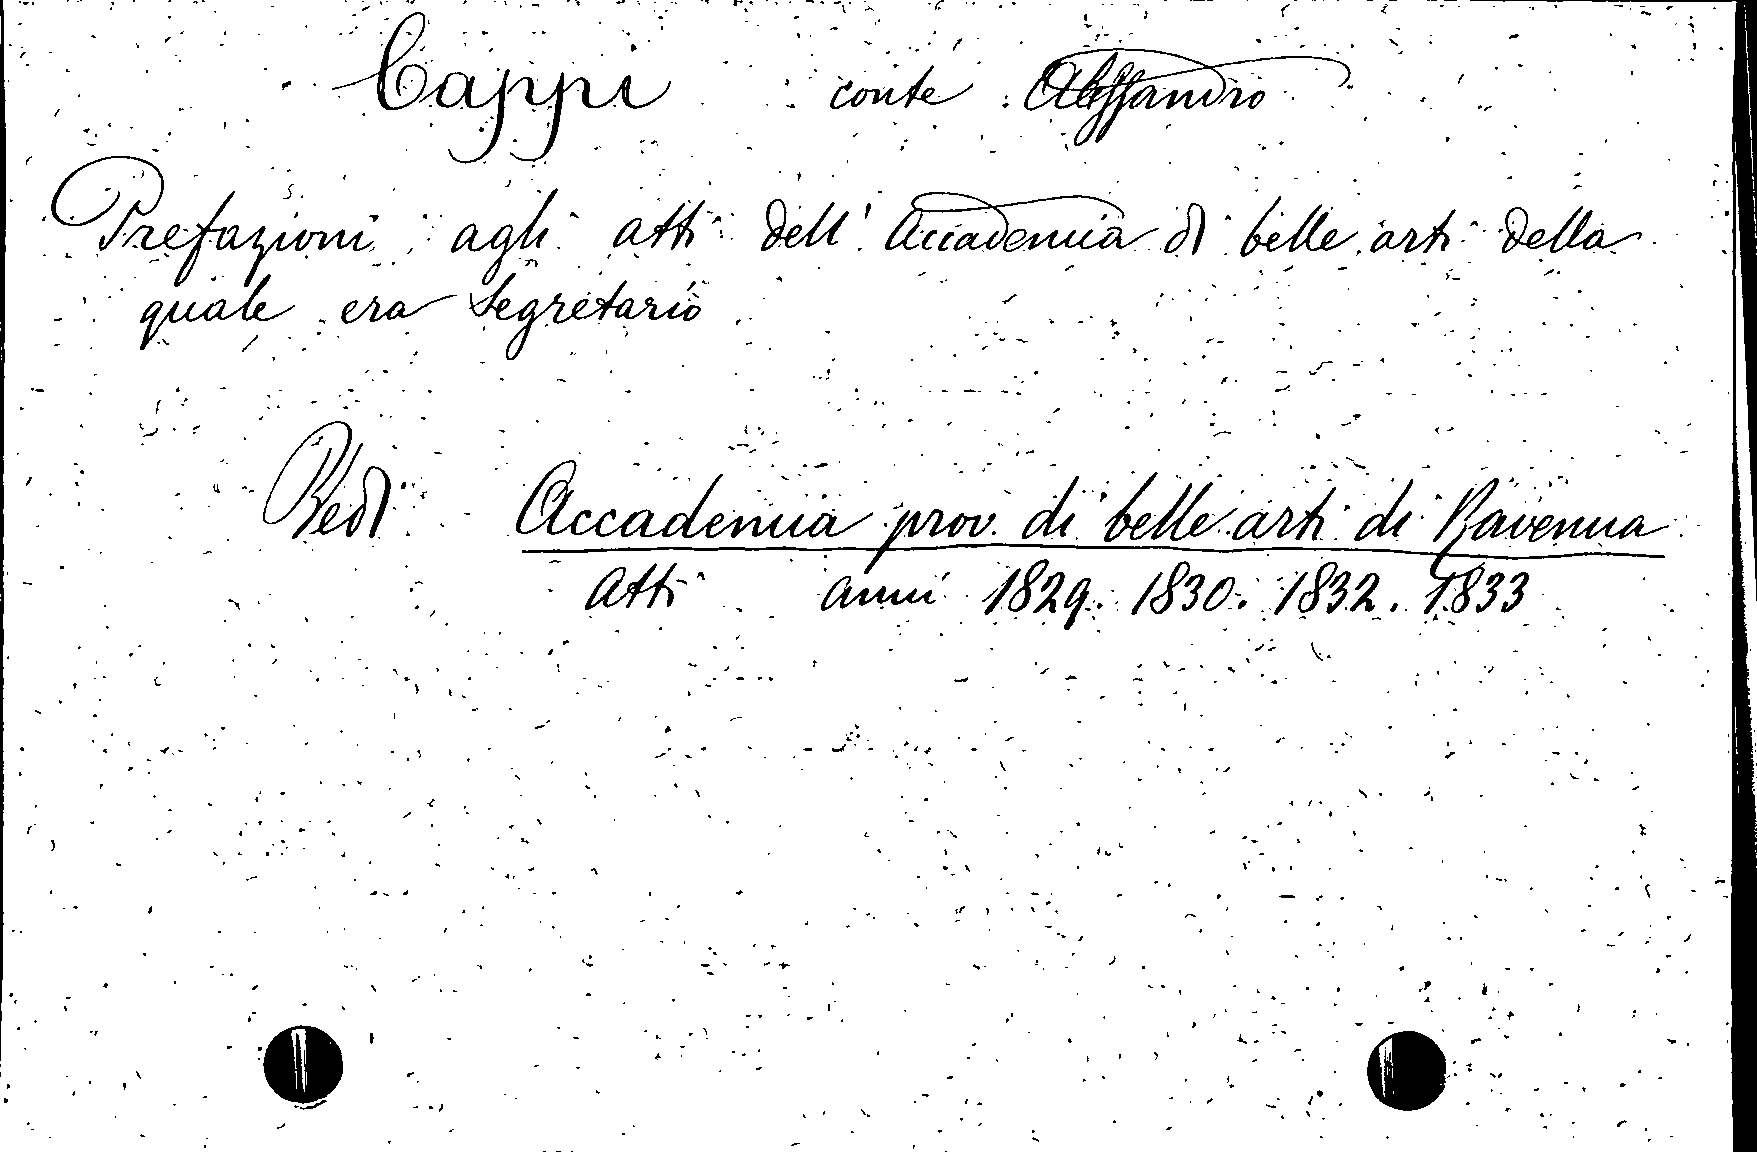 Cappi conte Alessandro
Prefazioni agli atti dell'Accademia di belle arti della
quale era segretario
Vedi Accademia prov. di belle arti di Ravenna
Atti anni 1829. 1830. 1832. 1833